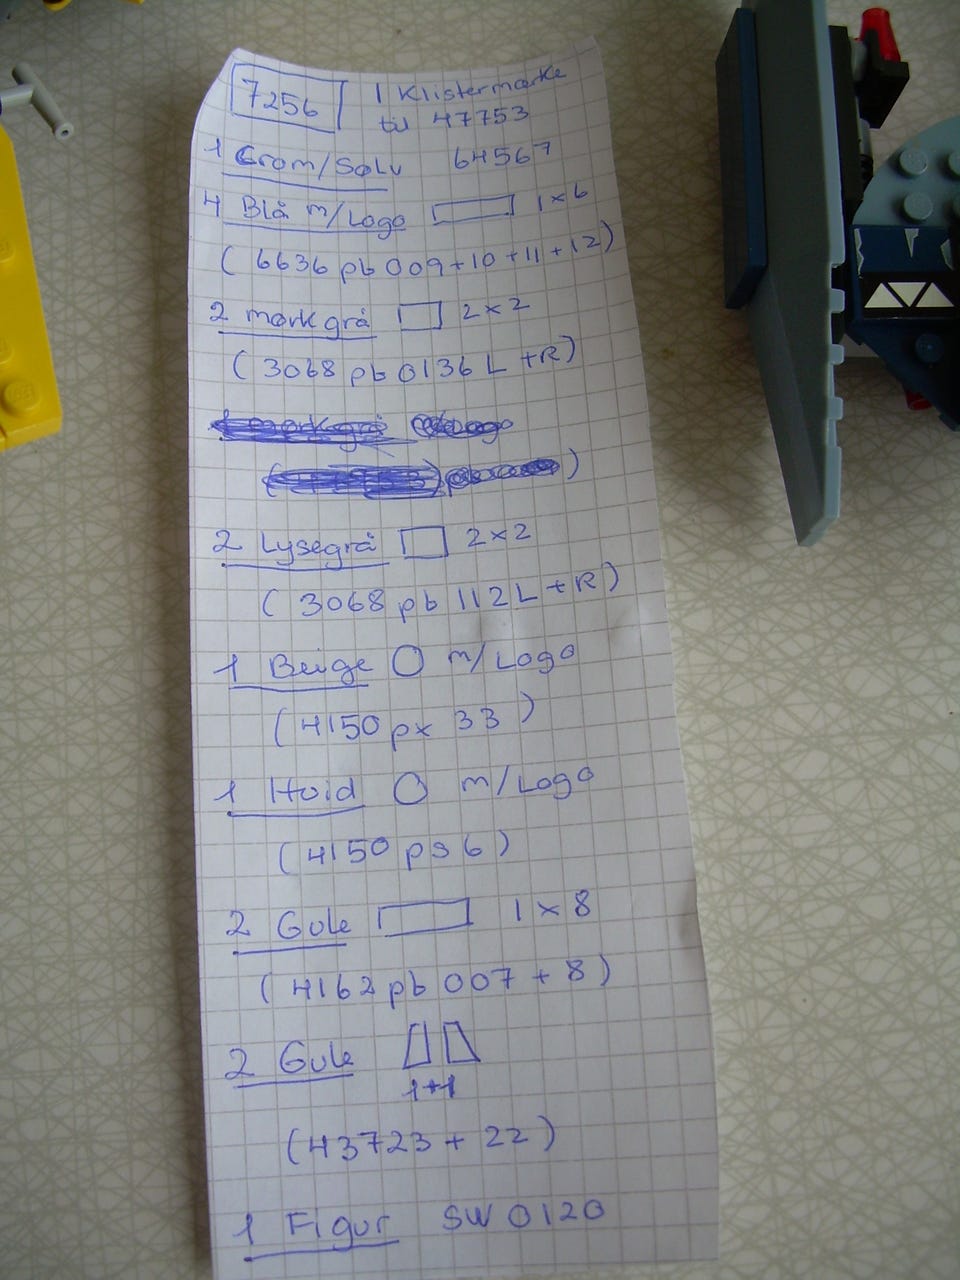 7256 1 Klistermærke
til 47753
1 Crom/Sølv 64567
4 Blå m/Logo 1x6
(6636 pb 009+10+11+12)
2 mørk grå 2x2
(3068 pb 0136 L+R)
2 Lysegrå 2x2
(3068 pb 112L+R)
1 Beige m/Logo
(4150 px 33)
1 Hvid m/Logo
(4150 ps 6)
2 Gule 1x8
(4162 pb 007+8)
2 Gule
1+1
(43723+22)
1 Figur SW 0120